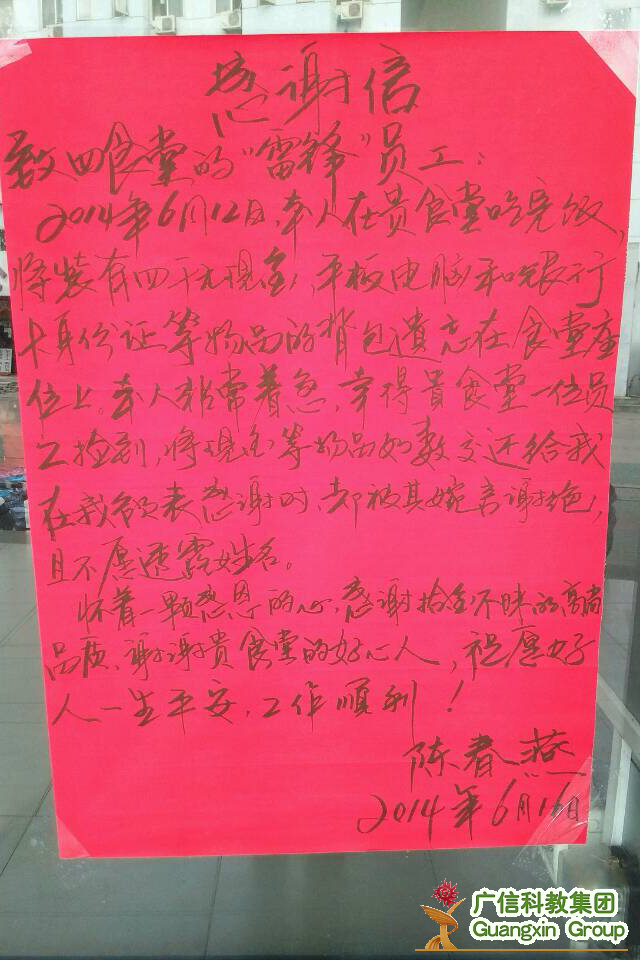 感谢信
致四食堂的“雷锋”员工:
2014年6月12日,本人在贵食堂吃完饭,
将装有四千元现金,平板电脑和银行
卡身份证等物品的背包遗忘在食堂座
位上。本人非常着急,幸得貴食堂一位员
工捡到,将现金等物品如数交还给我
在我欲表感谢时,却被其婉言谢绝,
且不愿透露姓名。
怀着一颗感恩的心,感谢拾金不昧的高尚
品质,谢谢贵食堂的好心人,祝愿好
人一生平安,工作顺利!
陈春燕
2014年6月16日
广信科教集团
Guangxin Group